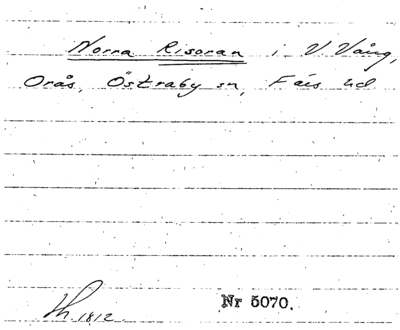 Norra Risoran i V. Vång,
Orås, Östraby sn, Färs hd
Lh. 1812
Nr 5070.